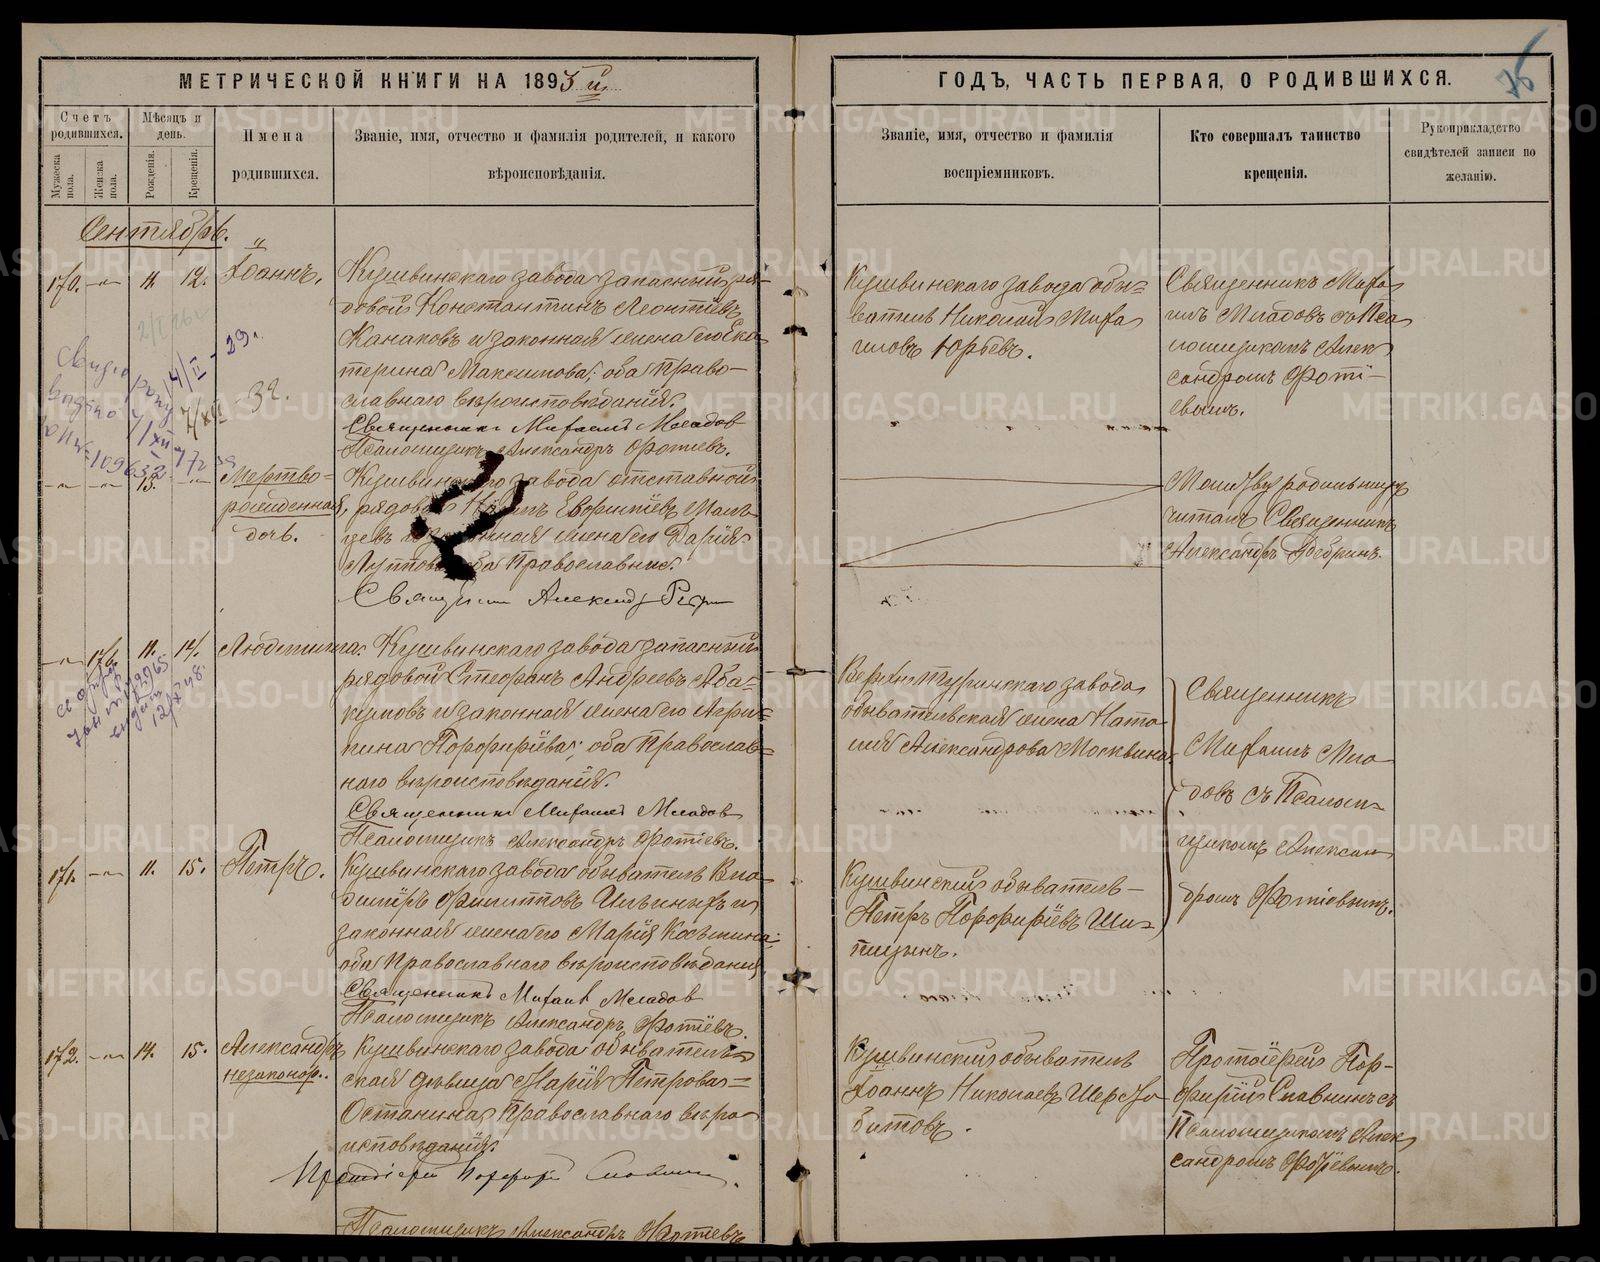 МЕТРИЧЕСКОЙ КНИГИ НА 1895 й
ГОДЪ, ЧАСТЬ ПЕРВАЯ, О РОДИВШИХСЯ.
75
Счетъ родившихся.
Мѣсяцъ и день.
Имена родившихся.
Званіе, имя, отчество и фамилія родителей, и какого
вѣроисповѣданія.
Званіе, имя, отчество и фамилія
воспріемниковъ.
Кто совершалъ таинство
крещенія.
Рукоприкладство
свидѣтелей записи по
желанію.
Мужеска пола.
Женска пола.
Рожденія.
Крещенія.
Сентябрь.
170.
11.
12.
Іоаннъ.
Кушвинскаго завода запасный ря-
довой Константинъ Леонтіевъ
Канаковъ и законная жена его Ека
терина Максимова; оба право-
славнаго вѣроисповѣданія.
Священникъ Михаилъ Младов
Псаломщикъ Александръ Фотіевъ.
Кушвинскаго завода обы-
ватель Николай Миха
иловъ Юрьевъ.
Священникъ Миха
илъ Младовъ съ Пса
ломщикомъ Алек
сандромъ Фоті-
евымъ.
13.
Мертво-
рожденная
дочь.
Кушвинскаго завода отставной
рядовой Евфиміевъ
жена его Дарія
оба Православные.
Молитву родильницѣ
читалъ Священникъ
Александръ
176.
11.
14.
Людмила.
Кушвинскаго завода запасный
рядовой Стефанъ Андреевъ Аба-
кумовъ и законная жена его Агри-
пина Порфиріева; оба Православ-
наго вѣроисповѣданія.
Священникъ Михаилъ Младов
Псаломщикъ Александръ Фотіевъ.
Верхнетуринскаго завода
обывательская жена Ната-
лія Александрова Москвина
Священникъ
Михаилъ Мла
довъ съ Псалом-
щикомъ Алексан
дромъ Фотіевымъ.
171.
11.
15.
Петръ.
Кушвинскаго завода обыватель Вла-
димиръ Филипповъ Ильиныхъ и
законная жена его Марія Косьмина;
оба Православнаго вѣроисповѣданія
Священникъ Михаил Младов
Псаломщикъ Александръ Фотіевъ.
Кушвинскій обыватель-
Петръ Порфиріевъ Ши-
пицынъ.
172.
14.
15.
Александръ
незаконор.
Кушвинскаго завода обыватель-
ская дѣвица Марія Петрова-
Останина, Православнаго вѣро
исповѣданія.
Протоіерей Порфирій Славнин
Псаломщикъ Александръ Фотіевъ
Кушвинскій обыватель
Іоаннъ Николаевъ Шерсто
битовъ.
Протоіерей Пор-
фирій Славнинъ съ
Псаломщикомъ Алек
сандромъ Фотіевымъ.
METRIKI.GASO-URAL.RU